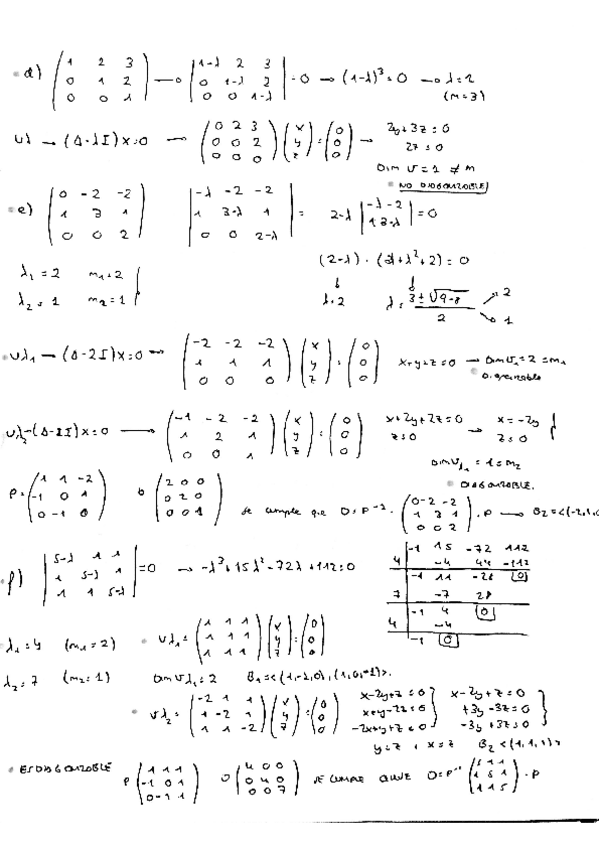 d) (1 2 3 / 0 1 2 / 0 0 1) → |1-λ 2 3 / 0 1-λ 2 / 0 0 1-λ| = 0 → (1-λ)³ = 0 → λ = 1
(m=3)
Uλ → (A-λI)x=0 → (0 2 3 / 0 0 2 / 0 0 0) (x / y / z) = (0 / 0 / 0) → 2y+3z=0
2z=0
Dim U=1 ≠ m
NO DIAGONIZABLE
e) (0 -2 -2 / 1 3 1 / 0 0 2) |-λ -2 -2 / 1 3-λ 1 / 0 0 2-λ| = 2-λ |-λ -2 / 1 3-λ| = 0
λ₁ = 2 m₁=2
λ₂ = 1 m₂=1
λ=2 λ = (3±√(9-8))/2 → 2
→ 1
Uλ₁ → (A-2I)x=0 → (-2 -2 -2 / 1 1 1 / 0 0 0) (x / y / z) = (0 / 0 / 0) x+y+z=0 → Dim U₁=2=m₁
(-1 -2 -2 / 1 2 1 / 0 0 1) (x / y / z) = (0 / 0 / 0) x+2y+2z=0 → x=-2y
z=0 z=0
DIAGONIZABLE.
P=(1 1 -2 / -1 0 1 / 0 -1 0) D (2 0 0 / 0 2 0 / 0 0 1) se cumple que D=P⁻¹·(0 -2 -2 / 1 3 1 / 0 0 2)·P →
f) |5-λ 1 1 / 1 5-λ 1 / 1 1 5-λ| = 0 → -λ³+15λ²-72λ+112=0
-1 15 -72 112
4 -4 44 -112
-1 11 -28 0
7 -7 28
-1 4 0
4 -4
-1 0
λ₁=4 (m₁=2) Uλ₁=(1 1 1 / 1 1 1 / 1 1 1) (x / y / z) = (0 / 0 / 0)
λ₂=7 (m₂=1) Dim Uλ₁=2 B₁=<(1,-1,0),(1,0,-1)>.
Uλ₂=(-2 1 1 / 1 -2 1 / 1 1 -2) (x / y / z) = (0 / 0 / 0)
x-2y+z=0 x-2y+z=0
x+y-2z=0 +3y-3z=0
-2x+y+z=0 -3y+3z=0
y=z , x=z B₂<(1,1,1)>
ES DIAGONIZABLE P (1 1 1 / -1 0 1 / 0 -1 1) D (4 0 0 / 0 4 0 / 0 0 7) SE CUMPLE QUE D=P⁻¹ (5 1 1 / 1 5 1 / 1 1 5)·P